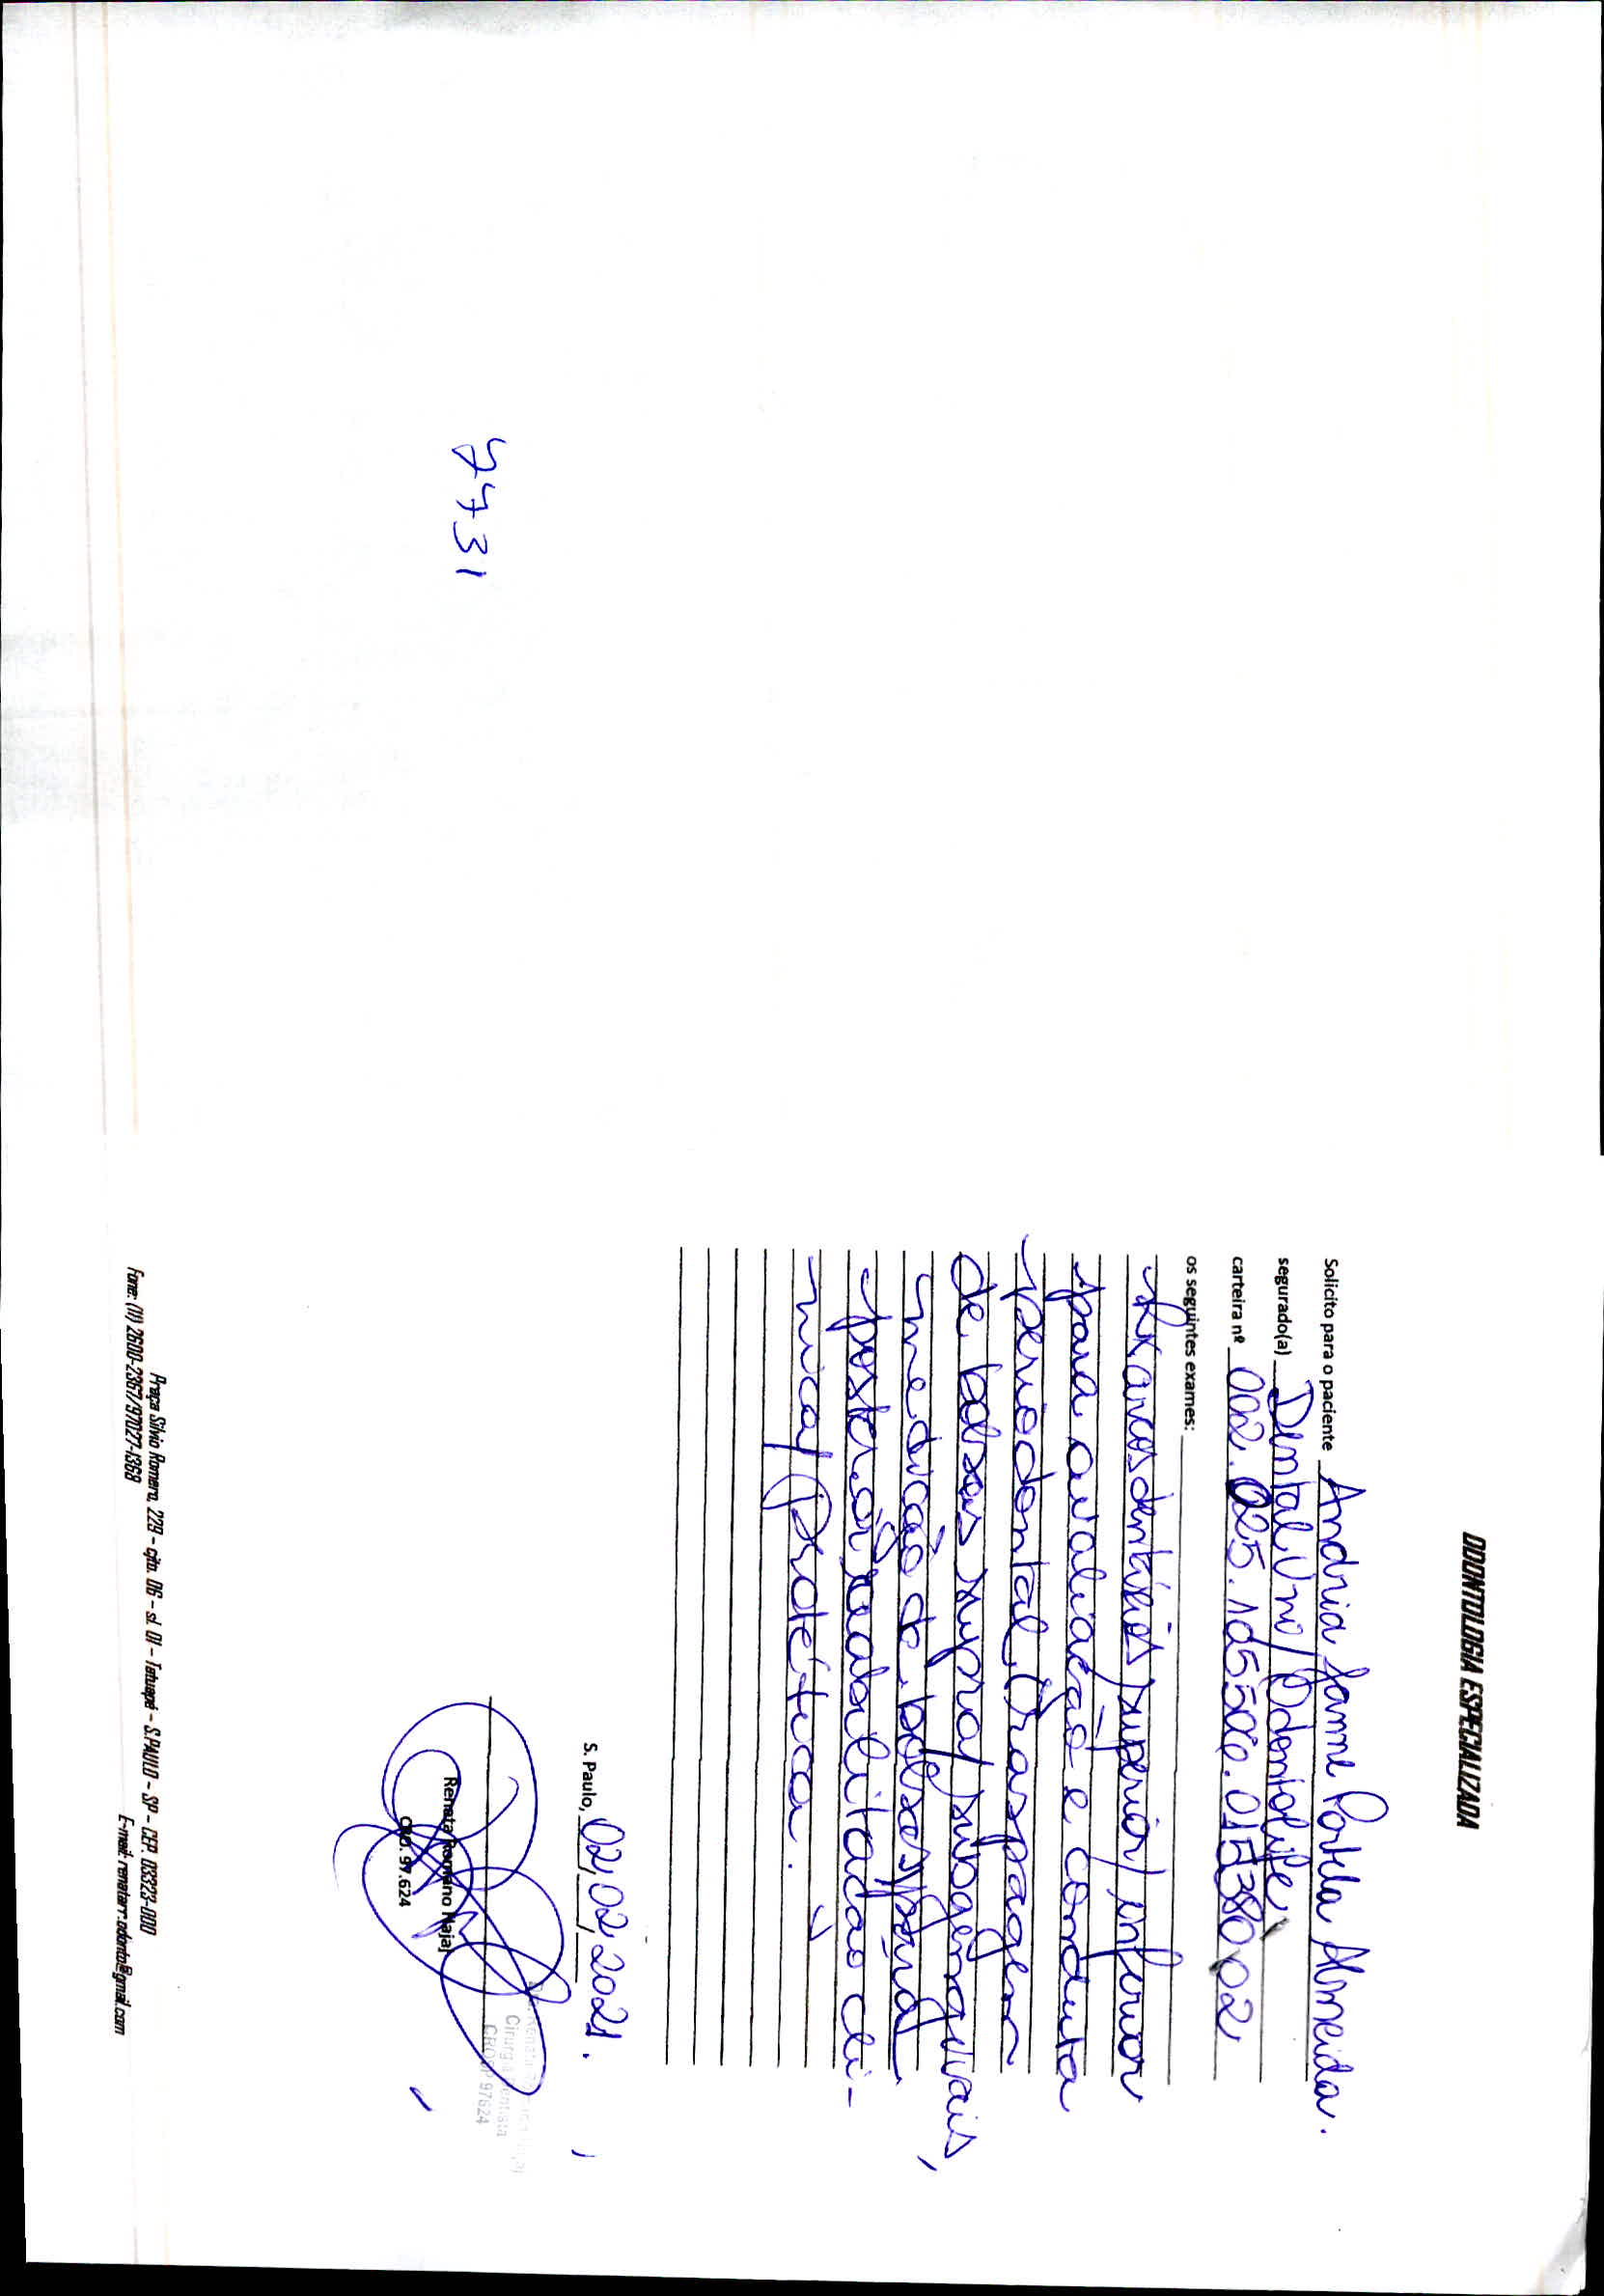 ODONTOLOGIA ESPECIALIZADA
Solicito para o paciente Andréia Jamne Portela Almeida.
segurado(a) Dental Uni / Odontolife
carteira nº 002.025.
os seguintes exames:
RX arcos dentários superior/inferior
para avaliação e conduta
periodontal, raspagem
de bolsas supra/subgengivais,
medicação de bolsas, para
posterior reabilitação clí-
nica/protética.
S. Paulo, 02/02/2021.
Renata Romano Najar
CRO. 97.624
Cirurgiã Dentista
CROSP 97624
Praça Silvio Romero, 229 - cjto. 06 - sl 01 - Tatuapé - S.PAULO - SP - CEP. 03323-000
Fone: (11) 2600-2367/97027-1368
E-mail: renatarr.odonto@gmail.com
7731